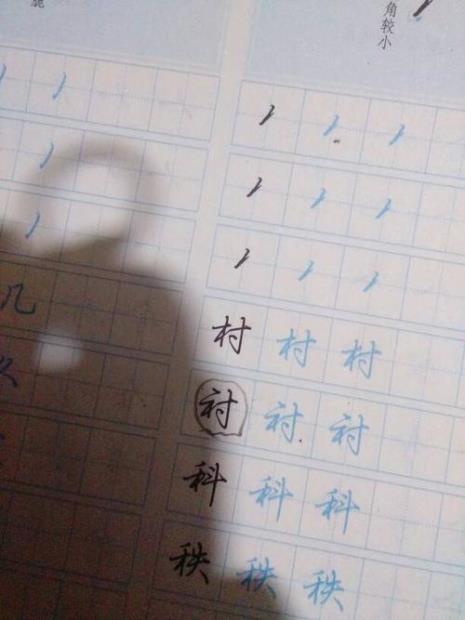 角较小
几
村 村 村
衬 衬 衬
科 科 科
秩 秩 秩